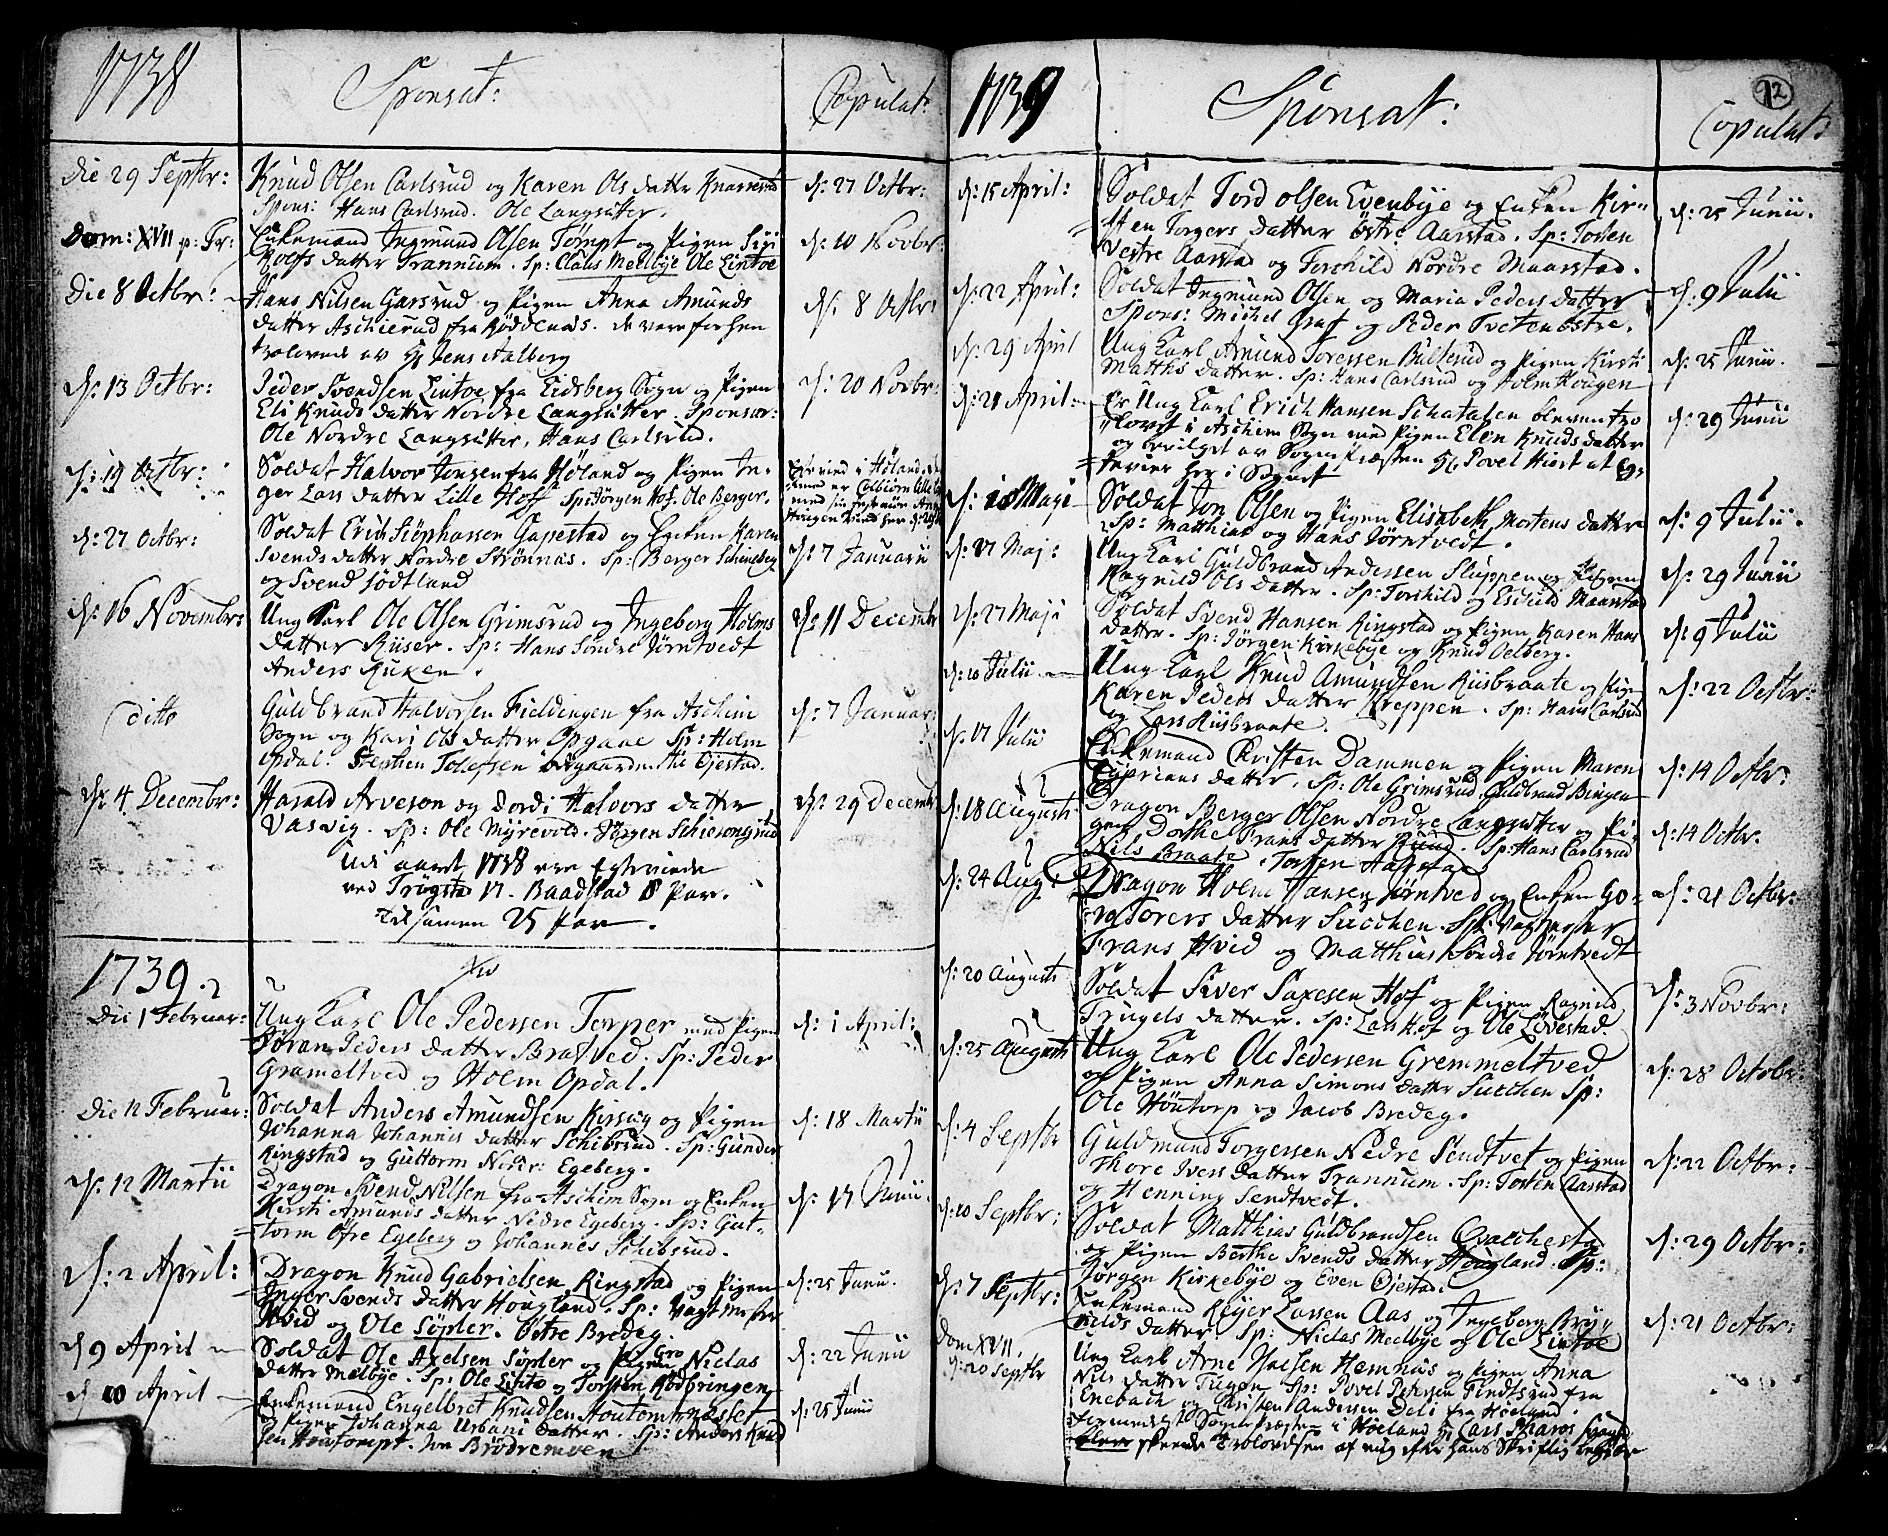 1738
Sponsat:
Copulat:
Die 29 Septbr:
Knud Olsen Carlsrud og Karen Ols datter Knarresrud
Spons: Hans Carlsrud. Ole Langsæter.
d: 27 Octbr:
Dom: XVII p: Tr:
Enkemand Ingmund Olsen Tømpt og Pigen Siri
Rolfs datter Trannum. Sp: Claus Melbye Ole Lintoe
d: 10 Novbr:
Die 8 Octbr:
Hans Nilsen Garsrud og Pigen Anna Amunds
datter Aschierud fra Røddenæs. de vare forhen
trolovede av Hr Jens Aalberg
d: 8 Octbr:
d: 13 Octbr:
Peder Svendsen Lintoe fra Eidsberg Sogn og Pigen
Eli Knuds datter Nordre Langsæter. Sponsor:
Ole Nordre Langsæter, Hans Carlsrud.
d: 20 Novbr:
d: 19 Octbr:
Soldat Halvor Jonsen fra Høland og Pigen In-
ger Lars datter Lille Hof Sp: Jørgen Hof. Ole Berger.
d: 27 Octbr:
Soldat Erich Stephansen Gapestad og Enken Karen
Svends datter Nordre Strønnæs. Sp: Berger
og Svend Sødtland
d: 7 Januarii
d: 16 Novembr:
Ung Karl Ole Olsen Grimsrud og Ingeborg Holms
datter Riiser. Sp: Hans Søndre Jørntvedt
Anders Ruken.
d: 11 Decembr
ditto
Guldbrand Halvorsen Fieldingen fra Aschim
Sogn og Kari Ols datter Opgaae Sp: Holm
Opdal. Stephen Tolefsen Øjestad.
d: 7 Januar:
d: 4 Decembr:
Harald Arveson og Dordi Halvors datter
Vasvig. Sp: Ole Myrevold. Jørgen
d: 29 Decembr
Udi aaret 1738 ere Egteviede
ved Trøgstad 17. Baadstad 8 Par.
tilsamen 25 Par.
1739.
Die 1 Februar:
Ung Karl Ole Pedersen Torper med Pigen
Jøran Peders datter Bratved. Sp: Peder
Grameltved og Holm Opdal.
d: 1 April:
Die 12 Februar:
Soldat Anders Amundsen Kirsug og Pigen
Johanna Johannis datter Schibsrud. Sp: Gunder
Ringstad og Guttorm Nedr: Egeberg.
d: 18 Martii
d: 12 Martii
Dragon Svend Nilsen fra Aschim Sogn og Enken
Kirsti Amunds datter Nedre Egeberg. Sp: Gut-
torm Øfre Egeberg og Johannes Schibsrud.
d: 17 Junii.
d: 2 April:
Dragon Knud Gabrielsen Ringstad og Pigen
Inger Svends datter Hougland. Sp: Vagt Mester
Hvid og Ole Søpler. Østre Bredeg.
d: 25 Junii.
d 9 April
Soldat Ole Axelsen Søpler og Pigen Gro Niclas
datter Melbye. Sp: Ole Linto og Torsten Rødbringen
d: 22 Junii
d 10 April
Enkemand Engelbret Knudsen Houtomt
og Pigen Johanna Urbani datter. Sp: Anders Knud
sen Houtompt. Iver Brødremoen
d: 25 Junii
1739
Sponsat:
92
Copulat:
d: 15 April:
Soldat Tord Olsen Evenbye og Enken Kir-
sten Torgers datter østre Aarstad. Sp: Torsten
Vestre Aarstad og Torchild Nordre Maarstad.
d: 25 Junii.
d: 22 April:
Soldat Ingmund Olsen og Maria Peders datter
Spons: Michel Graf og Peder Tvetenøstre.
d: 9 Julii
d: 29 April
Ung Karl Amund Toressen Bulterud og Pigen Kirsti
Matths datter. Sp: Hans Carlsrud og Holm Hougen
d: 25 Junii.
d: 21 April:
Er Ung Karl Erich Hansen Schatalen bleven tro
lovet i Aschim Sogn med Pigen Elen Knuds datter
og bevilget av Sogne Præsten Hr Povel Hiort at
her i Sognet
d: 29 Junii
d: 10 Maji
Soldat Jon Olsen og Pigen Elisabeth Mortens datter
Sp: Matthias og Hans Jørntvedt.
d: 9 Julii.
d: 17 Maj:
Ung Karl Guldbrand Andersen Sluppen og Pigen
Ragnild Ols datter. Sp: Torchild og Eschild Maarstad
d: 29 Junii
d: 27 Maji
Soldat Svend Hansen Ringstad og Pigen Karen Hans
datter. Sp: Jørgen Kirkebye og Knud Oelberg.
d: 9 Julii
d: 10 Julii
Ung Karl Knud Amundsen Riisbraate og Pigen
Karen Peders datter Kreppen. Sp: Hans Carlsrud
og Lars Riisbraate.
d: 22 Octbr:
d: 17 Julii
Enkemand Christen Dammen og Pigen Maren
Ciprians datter. Sp: Ole Grimsrud, Guldbrand Bingen
d: 14 Octbr:
d: 18 Augusti
Dragon Berger Olsen Nordre Langsæter og Pi-
gen Dorthe Frans datter Ruud. Sp: Hans Carlsrud
Nils Braate. Torsten Aastad
d: 14 Octbr.
d: 24 Aug:
Dragon Holm Hansen Jørntved og Enken Go-
ro Torers datter Succhen. Sp: Vagtmester
Frans Hvid og Matthias Søndre Jørntvedt
d: 21 Octbr:
d: 20 Augusti
Soldat Siver Saxesen Hof og Pigen Ragnild
Trugels datter. Sp: Lars Hof og Ole Løvestad.
d: 3 Novbr:
d: 25 Augusti
Ung Karl Ole Pedersen Gremmeltved
og Pigen Anna Simons datter Succhen Sp:
Ole Høutorp og Jacob Bredeg.
d: 28 Octobr:
d: 4 Septbr
Guldmund Torgersen Nedre Sendtvet og Pigen
Thore Ivers datter Trannum. Sp: Torsten Aarstad
og Henning Sendtvedt.
d: 22 Octbr:
d: 10 Septbr:
Soldat Matthias Guldbrandsen
og Pigen Berthe Svends datter Hougland. Sp:
Jørgen Kirkebye og Even Øjestad.
d: 29 Octbr:
d: 7 Septbr:
Enkemand Reyer Larsen Aas og Ingeborg
nilds datter. Sp: Niclas Melbye og Ole Lintoe
d: 21 Octbr:
Dom XVII.
d: 20 Septbr
Ung Karl Arne Ivesen Hemnæs og Pigen Anna
Nils datter Tugen. Sp: Povel Pedersen Tindtsrud fra
Enebach og Christen Andersen Deli fra Høeland.
Sogne Præsten i Høeland Hr Lars
blev skeende Trolovelsen af mig efter hans Skriftlig